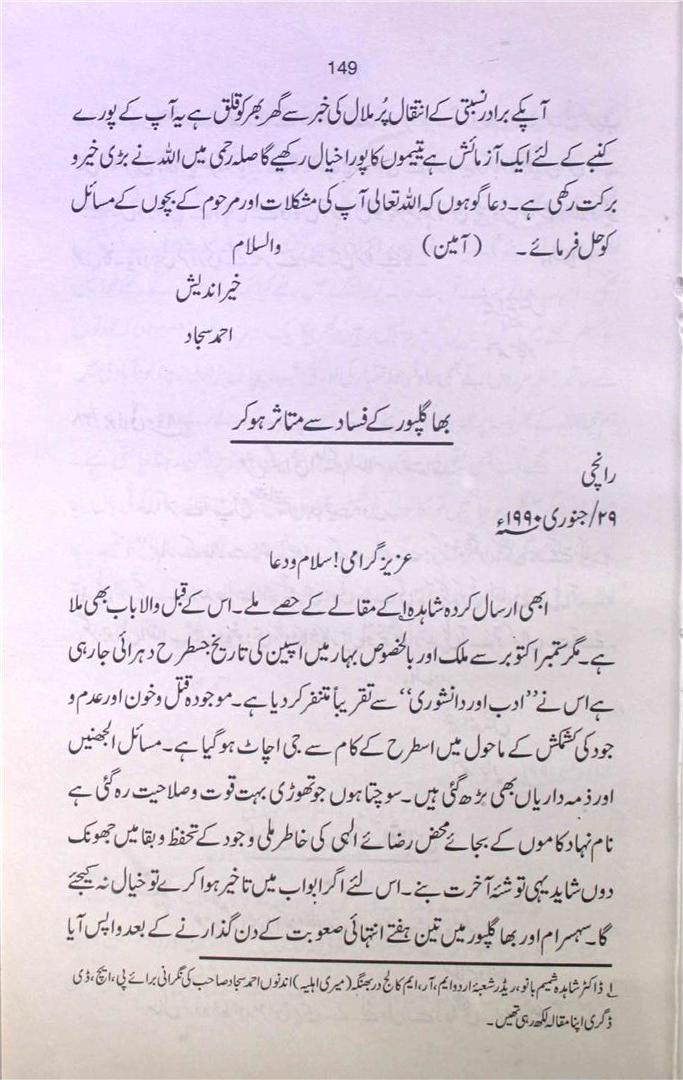 149
آپکے برادر نسبتی کے انتقال پُر ملال کی خبر سے گھر بھر کو قلق ہے یہ آپ کے پورے
کنبے کے لئے ایک آزمائش ہے یتیموں کا پورا خیال رکھیے گا صلہ رحمی میں اللہ نے بڑی خیر و
برکت رکھی ہے۔ دعا گو ہوں کہ اللہ تعالیٰ آپ کی مشکلات اور مرحوم کے بچوں کے مسائل
کو حل فرمائے۔ (آمین) والسلام
خیر اندیش
احمد سجاد
بھاگلپور کے فساد سے متاثر ہو کر
رانچی
۲۹/جنوری ۱۹۹۰ء
عزیز گرامی! سلام و دعا
ابھی ارسال کردہ شاہدہ۱ کے مقالے کے حصے ملے۔ اس کے قبل والا باب بھی ملا
ہے۔ مگر ستمبر اکتوبر سے ملک اور بالخصوص بہار میں اسپین کی تاریخ جسطرح دہرائی جارہی
ہے اس نے ”ادب اور دانشوری“ سے تقریباً متنفر کر دیا ہے۔ موجودہ قتل و خون اور عدم و
جود کی کشمکش کے ماحول میں اسطرح کے کام سے جی اچاٹ ہو گیا ہے۔ مسائل الجھنیں
اور ذمہ داریاں بھی بڑھ گئی ہیں۔ سوچتا ہوں جو تھوڑی بہت قوت و صلاحیت رہ گئی ہے
نام نہاد کاموں کے بجائے محض رضائے الٰہی کی خاطر ملی وجود کے تحفظ و بقا میں جھونک
دوں شاید یہی توشئہ آخرت بنے۔ اس لئے اگر ابواب میں تاخیر ہوا کرے تو خیال نہ کیجئے
گا۔ سہسرام اور بھاگلپور میں تین ہفتے انتہائی صعوبت کے دن گذارنے کے بعد واپس آیا
۱ ڈاکٹر شاہدہ شمیم بانو، ریڈر شعبۂ اردو ایم، آر، ایم کالج دربھنگہ (میری اہلیہ) اندنوں احمد سجاد صاحب کی نگرانی برائے پی، ایچ، ڈی
ڈگری اپنا مقالہ لکھ رہی تھیں۔